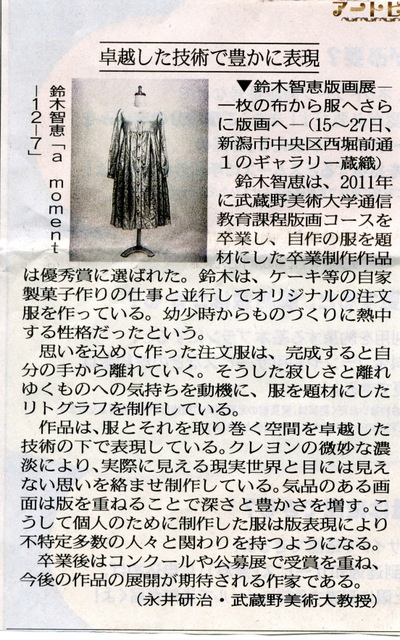 アートピ
卓越した技術で豊かに表現
鈴木智恵「a moment
―12―7」
▼鈴木智恵版画展―
一枚の布から服へさら
に版画へ―（15～27日、
新潟市中央区西堀前通
1のギャラリー蔵織）
鈴木智恵は、2011年
に武蔵野美術大学通信
教育課程版画コースを
卒業し、自作の服を題
材にした卒業制作作品
は優秀賞に選ばれた。鈴木は、ケーキ等の自家
製菓子作りの仕事と並行してオリジナルの注文
服を作っている。幼少時からものづくりに熱中
する性格だったという。
思いを込めて作った注文服は、完成すると自
分の手から離れていく。そうした寂しさと離れ
ゆくものへの気持ちを動機に、服を題材にした
リトグラフを制作している。
作品は、服とそれを取り巻く空間を卓越した
技術の下で表現している。クレヨンの微妙な濃
淡により、実際に見える現実世界と目には見え
ない思いを絡ませ制作している。気品のある画
面は版を重ねることで深さと豊かさを増す。こ
うして個人のために制作した服は版表現により
不特定多数の人々と関わりを持つようになる。
卒業後はコンクールや公募展で受賞を重ね、
今後の作品の展開が期待される作家である。
（永井研治・武蔵野美術大教授）